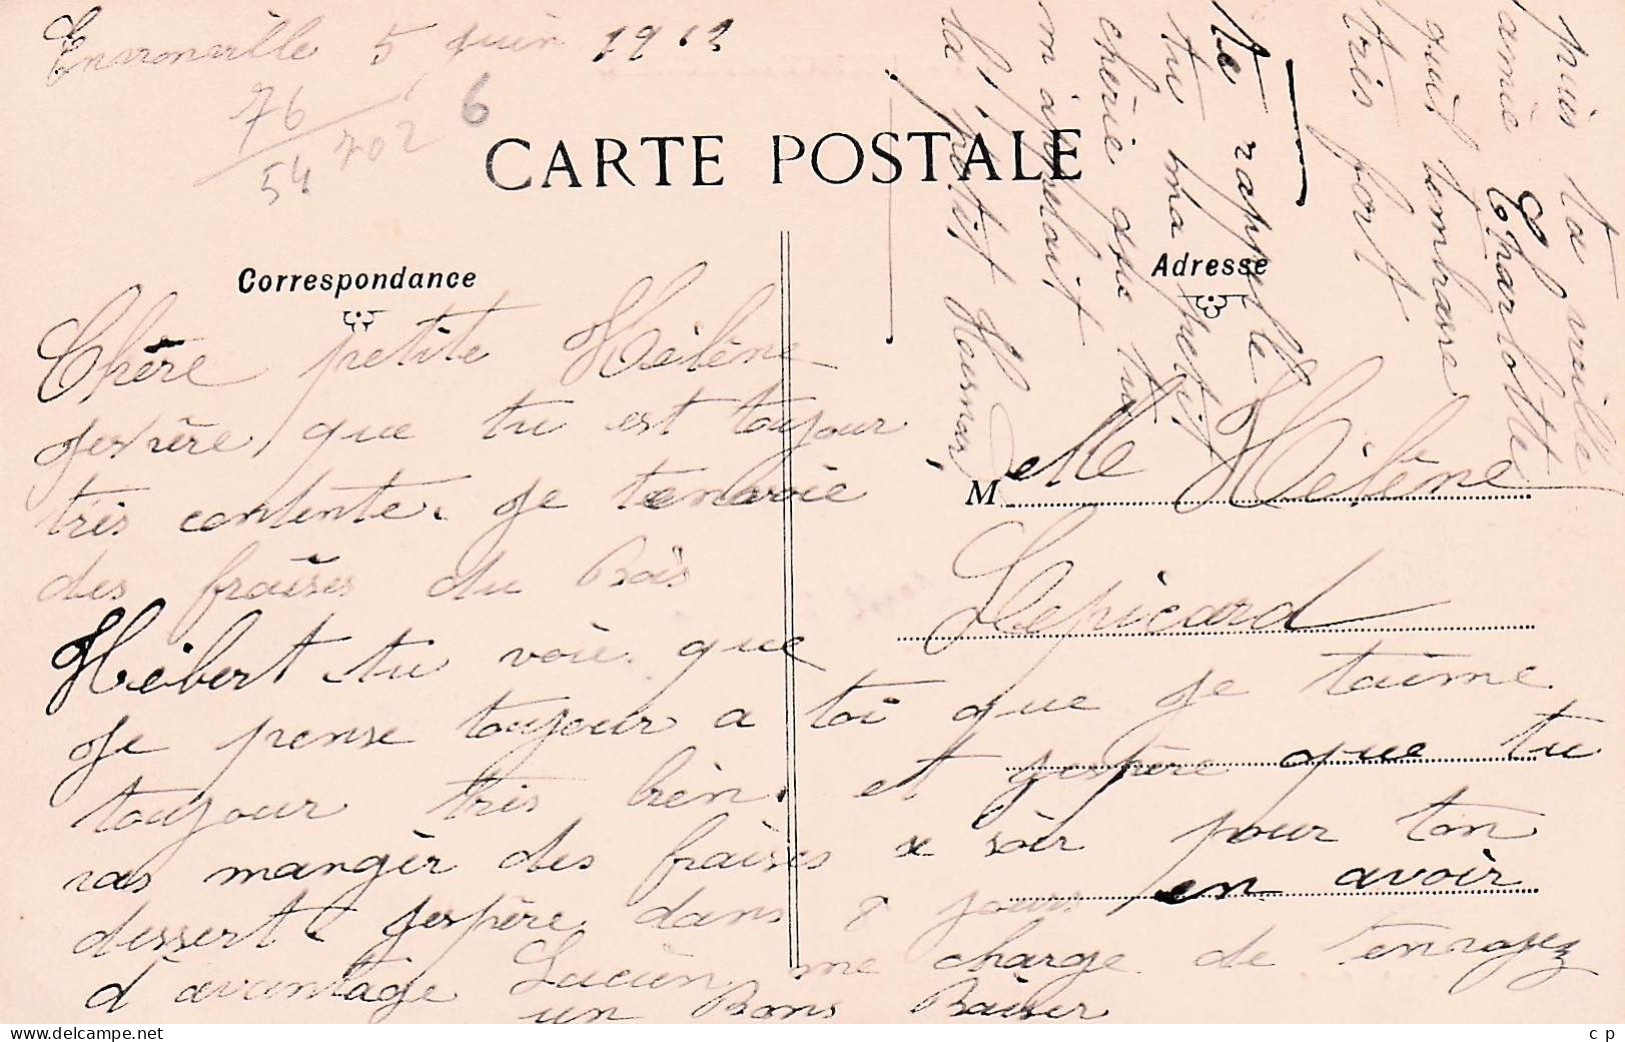 Envronville 5 juin 1912
76
54 702 6
CARTE POSTALE
Correspondance
Adresse
Chère petite Hélène
jespère que tu est toujour
très contente. je tenavoie
des fraises du Bois
Hébert tu voie que
je pense toujour a toi que je taime
toujour très bien. et jespère que tu
ras mangèr des fraises se soir pour ton
dessert. jespère dans 8 jours en avoir
d'avantage Lucien me charge de t'envoyez
un Bons Baiser
Melle Hélène
Lepicard
puis ta vieille
amie Charlotte
qui t'embrasse
très fort
te rappelle
tu ma petit
chérie que tu
m'appelait
la petit